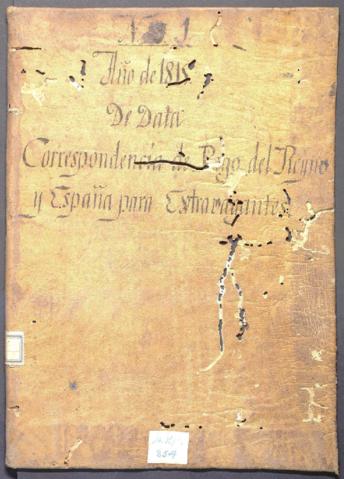 N. 1
Año de 1818
De Data
Correspondencia de Pígo del Reyno
y España para Extravagantes
854